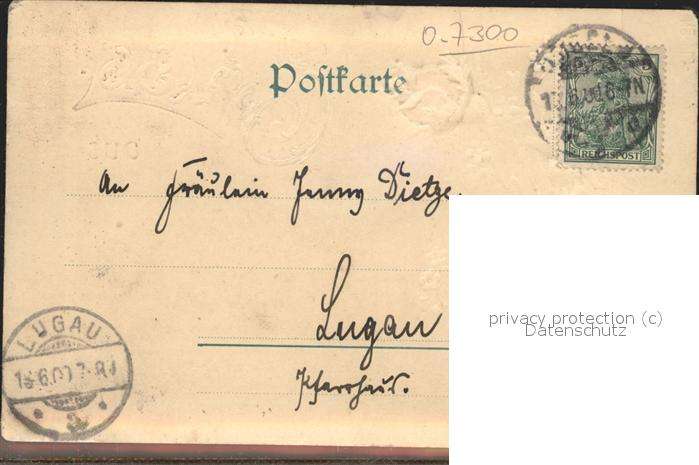 0.7300
Postkarte
REICHSPOST
An Fräulein Jenny Dietze.
Lugau
Pfarrhaus.
LUGAU
privacy protection (c)
Datenschutz